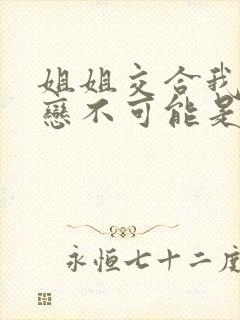 姐姐交合我
戀不可能是
永恒七十二度